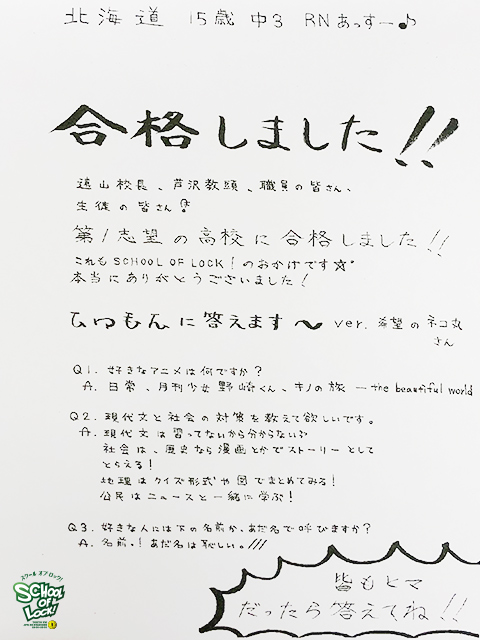 北海道 15歳 中3 RNあっすー♪
合格しました!!
遠山校長、芦沢教頭、職員の皆さん、
生徒の皆さん!
第1志望の高校に合格しました!!
これもSCHOOL OF LOCK!のおかげです☆
本当にありがとうございました!
ひつもんに答えます〜 ver.希望のネコ丸
さん
Q1. 好きなアニメは何ですか?
A. 日常、月刊少女野崎くん、キノの旅 ―the beautiful world
Q2. 現代文と社会の対策を教えて欲しいです。
A. 現代文は習ってないから分からない
社会は、歴史なら漫画とかでストーリーとして
とらえる!
地理はクイズ形式や図でまとめてみる!
公民はニュースと一緒に学ぶ!
Q3. 好きな人には下の名前か、あだ名で呼びますか?
A. 名前、!あだ名は恥しい。///
皆もヒマ
だったら答えてね!!
スクール オブ ロック!
SCHOOL
OF
LOCK!